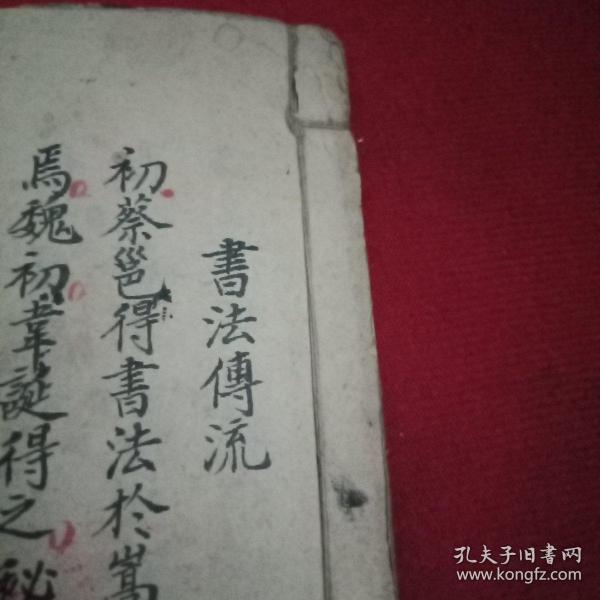 書法傳流
初蔡邕得書法於嵩
焉魏初韋誕得之秘
孔夫子旧书网
www.kongfz.com